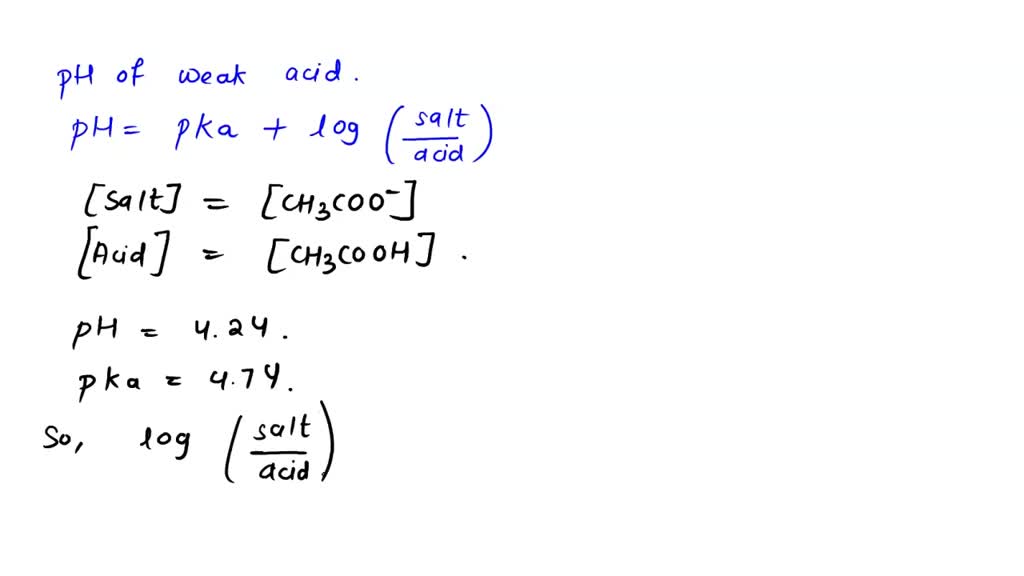 pH of weak acid.
pH = pka + log (salt/acid)
[Salt] = [CH3COO⁻]
[Acid] = [CH3COOH] .
pH = 4.24.
pka = 4.74.
So, log (salt/acid)